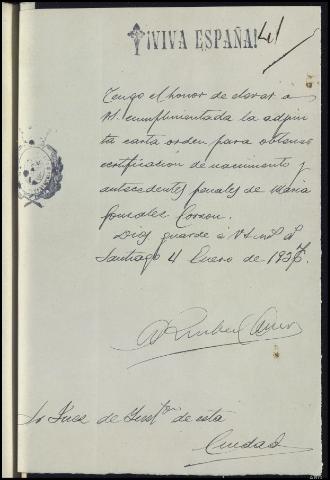 ¡VIVA ESPAÑA! 41
Tengo el honor de elevar a
V. cumplimentada la adjun
ta carta orden para obtener
certificación de nacimiento y
antecedentes penales de Maria
Gonzalez
Dios guarde a V.
Santiago 4 Enero de 1937.
Sr Juez de Inston de esta
Ciudad